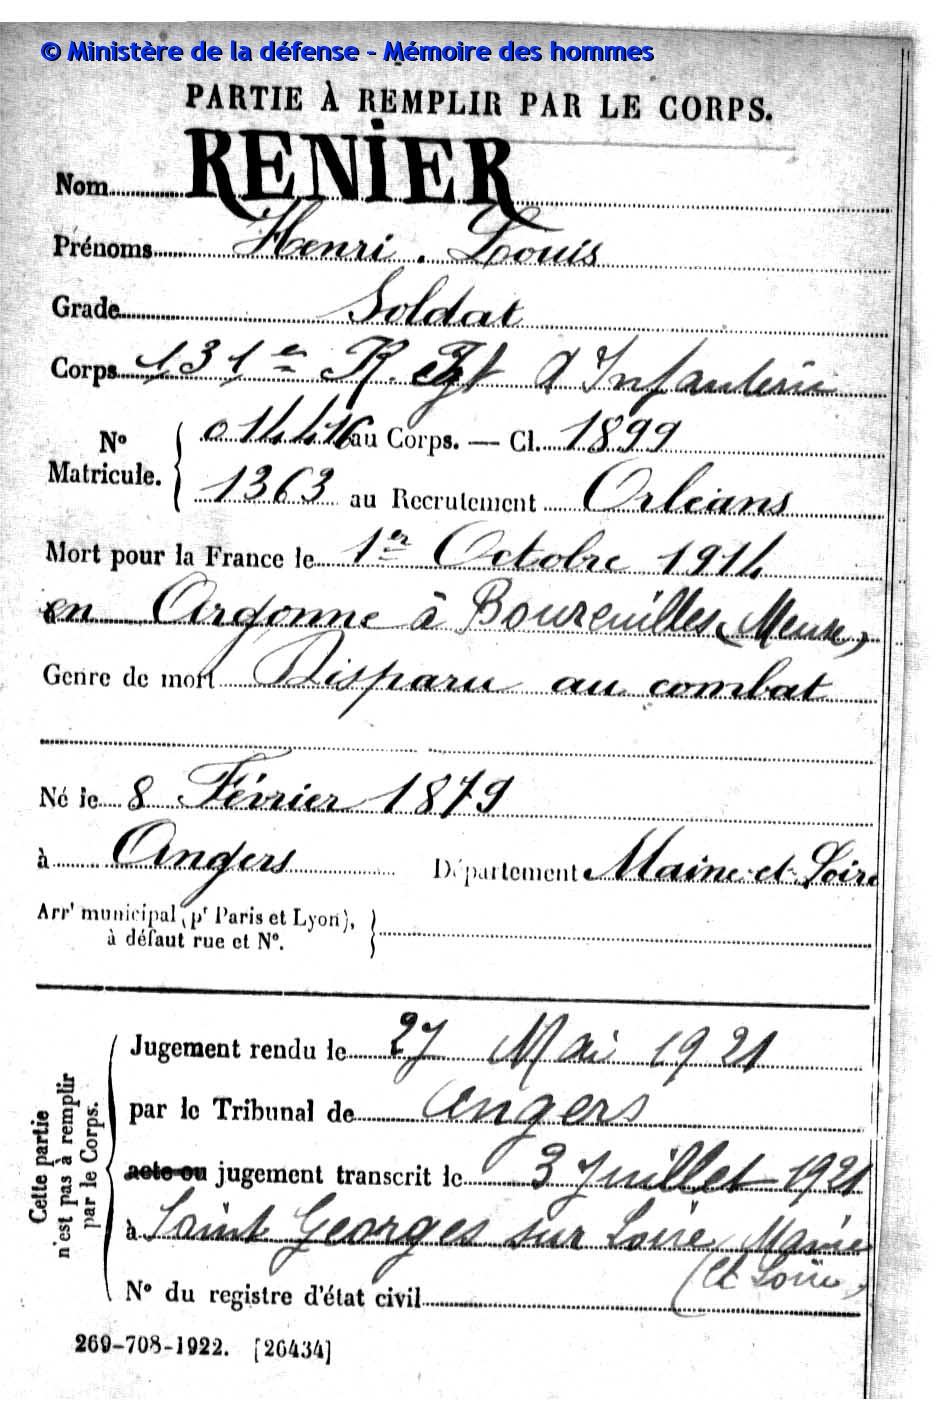 © Ministère de la défense - Mémoire des hommes
PARTIE À REMPLIR PAR LE CORPS.
Nom RENIER
Prénoms Henri. Louis
Grade Soldat
Corps 131e R. d'Infanterie
No Matricule. 01446 au Corps. — Cl. 1899
1363 au Recrutement Orléans
Mort pour la France le 1er Octobre 1914
en Argonne à Boureuilles (Meuse)
Genre de mort Disparu au combat
Né le 8 Février 1879
à Angers Département Maine-et-Loire
Arrt municipal (pr Paris et Lyon),
à défaut rue et No.
Cette partie
n'est pas à remplir
par le Corps.
Jugement rendu le 27 Mai 1921
par le Tribunal de Angers
acte ou jugement transcrit le 3 Juillet 1921
à Saint Georges sur Loire Maine
(et Loire)
No du registre d'état civil
269-708-1922. [26434]